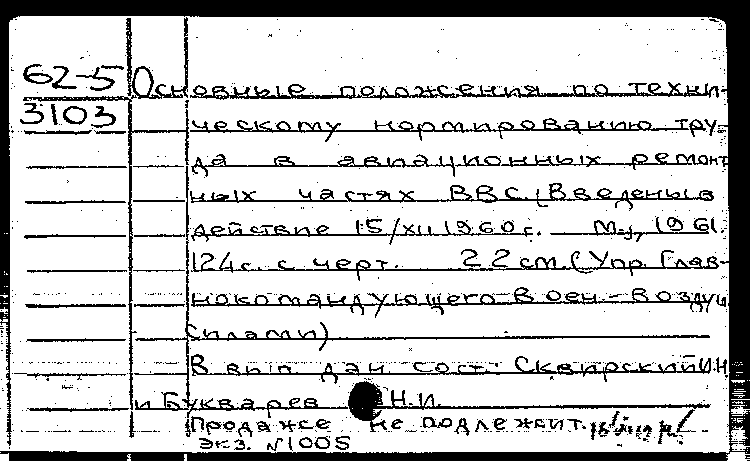 62-5
3103
Основные положения по техни-
ческому нормированию тру-
да в авиационных ремонт
ных частях ВВС. (Введены в
действие 15/XII 1960г. М., 1961.
124с. с черт. 22 см. (Упр. Глав-
нокомандующего Воен-Возду
Силами)
В вып. дан сост.: Сквирский И.Н
и Букварев Н.И.
Продаже не подлежит.
Экз. №1005